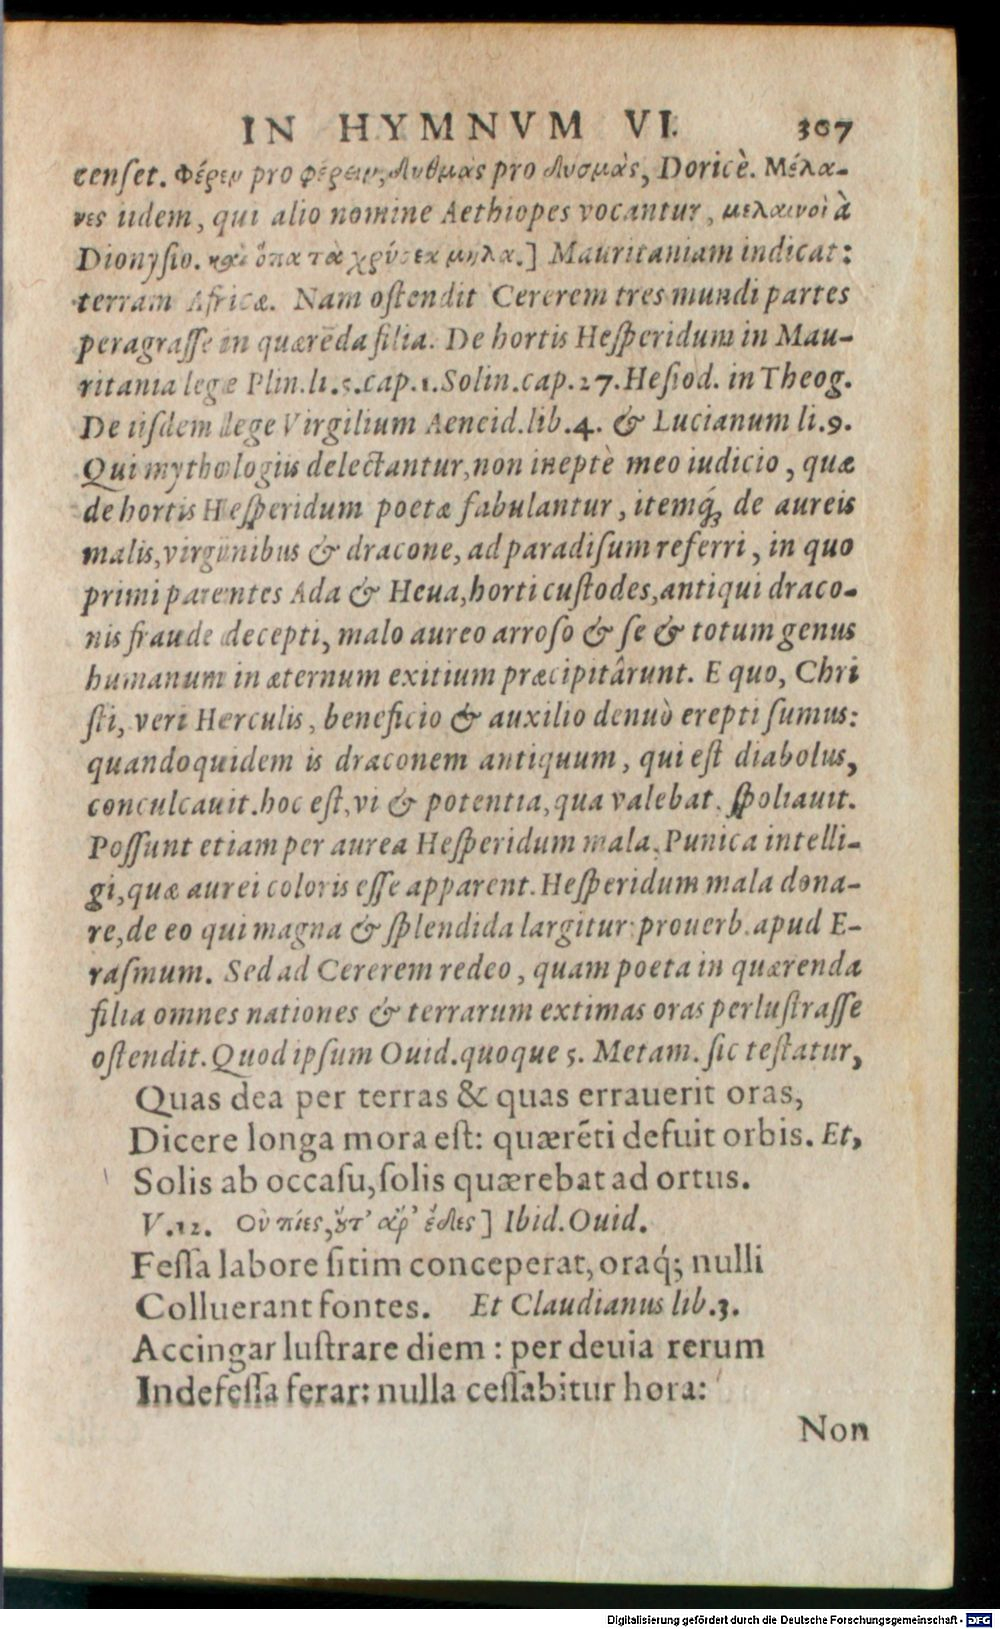 IN HYMNVM VI. 307
censet. Φέρεν pro φέρειν, δυθμὰς pro δυσμὰς, Doricè. Μέλα-
νες iidem, qui alio nomine Aethiopes vocantur, μελαινοὶ à
Dionysio. καὶ ὅπα τὰ χρύσεα μῆλα.] Mauritaniam indicat:
terram Africæ. Nam ostendit Cererem tres mundi partes
peragrasse in quærẽda filia. De hortis Hesperidum in Mau-
ritania lege Plin.li.5.cap.1.Solin.cap.27.Hesiod. in Theog.
De iisdem lege Virgilium Aeneid.lib.4. & Lucianum li.9.
Qui mythologiis delectantur, non ineptè meo iudicio, quæ
de hortis Hesperidum poetæ fabulantur, itemq́; de aureis
malis, virginibus & dracone, ad paradisum referri, in quo
primi parentes Ada & Heua, horti custodes, antiqui draco-
nis fraude decepti, malo aureo arroso & se & totum genus
humanum in æternum exitium præcipitârunt. E quo, Chri
sti, veri Herculis, beneficio & auxilio denuò erepti sumus:
quandoquidem is draconem antiquum, qui est diabolus,
conculcauit. hoc est, vi & potentia, qua valebat, spoliauit.
Possunt etiam per aurea Hesperidum mala, Punica intelli-
gi, quæ aurei coloris esse apparent. Hesperidum mala dona-
re, de eo qui magna & splendida largitur: prouerb. apud E-
rasmum. Sed ad Cererem redeo, quam poeta in quærenda
filia omnes nationes & terrarum extimas oras perlustrasse
ostendit. Quod ipsum Ouid. quoque 5. Metam. sic testatur,
Quas dea per terras & quas errauerit oras,
Dicere longa mora est: quærẽti defuit orbis. Et,
Solis ab occasu, solis quærebat ad ortus.
V.12. Οὐ πίες, ȣ̓τ' ἄρ' ἔδες] Ibid. Ouid.
Fessa labore sitim conceperat, oraq́; nulli
Colluerant fontes. Et Claudianus lib.3.
Accingar lustrare diem: per deuia rerum
Indefessa ferar: nulla cessabitur hora:
Non
Digitalisierung gefördert durch die Deutsche Forschungsgemeinschaft - DFG